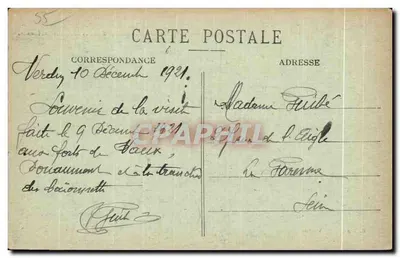 55
CARTE POSTALE
CORRESPONDANCE
ADRESSE
Verdun 10 Décemb 1921.
Souvenir de la visite
fait le 9 Décembre 1921
aux forts de Vaux,
Douaumont et à la tranchée
des baïonnette
Madame
de l'Aigle
La Varenne
Seine
CHARPHIL.COM